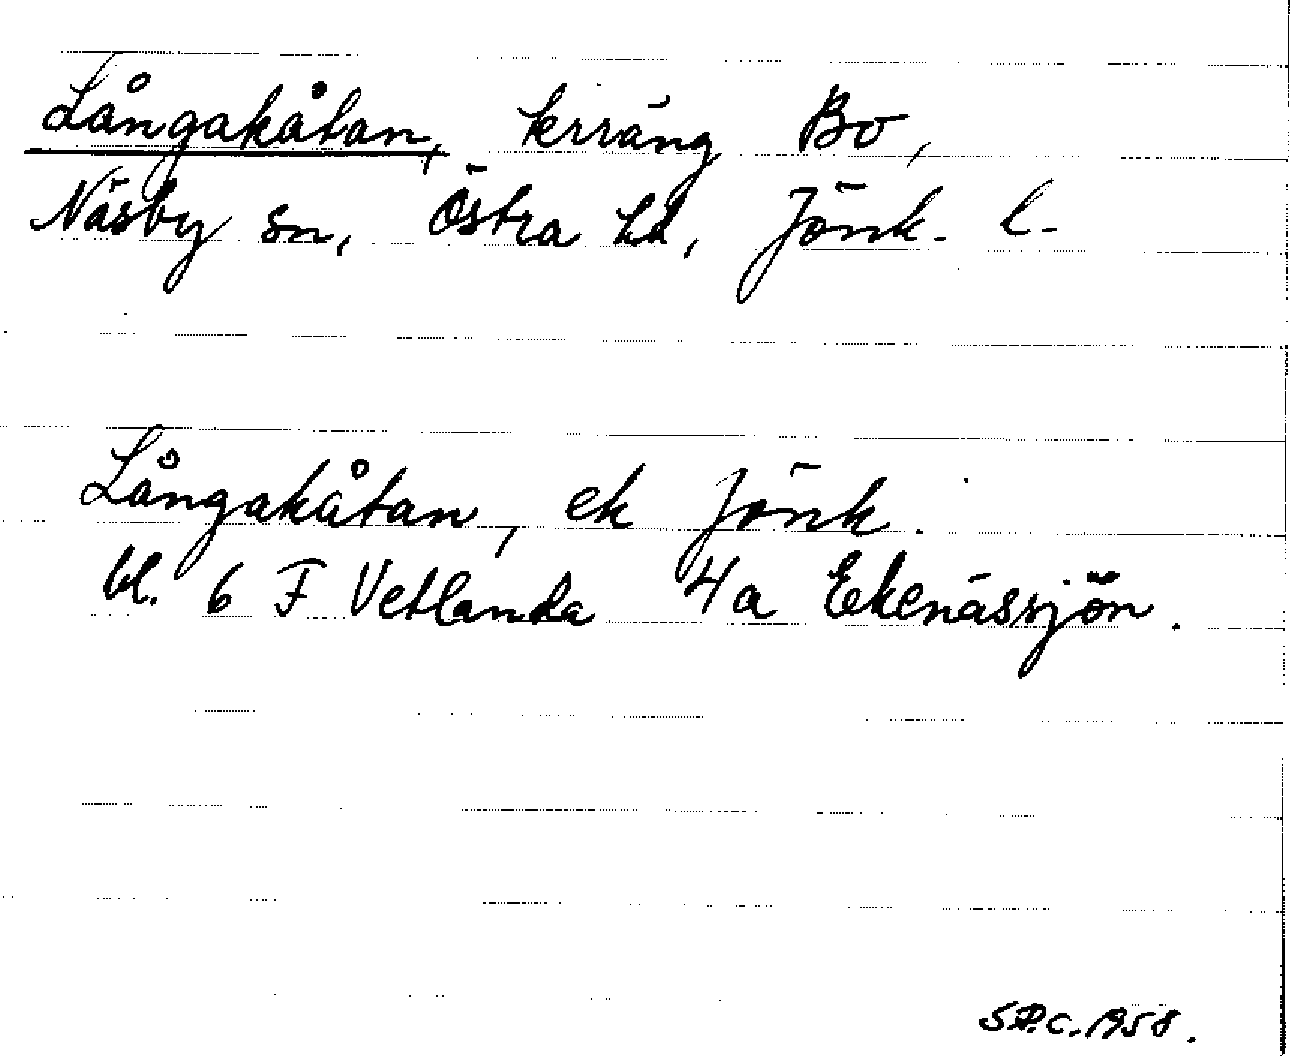 Långakåtan, terräng Bo,
Näsby sn, Östra hd, Jönk. l.
Långakåtan, ek Jönk.
bl. 6 F Vetlanda 4a Ekenässjön.
S.P.C. 1958.